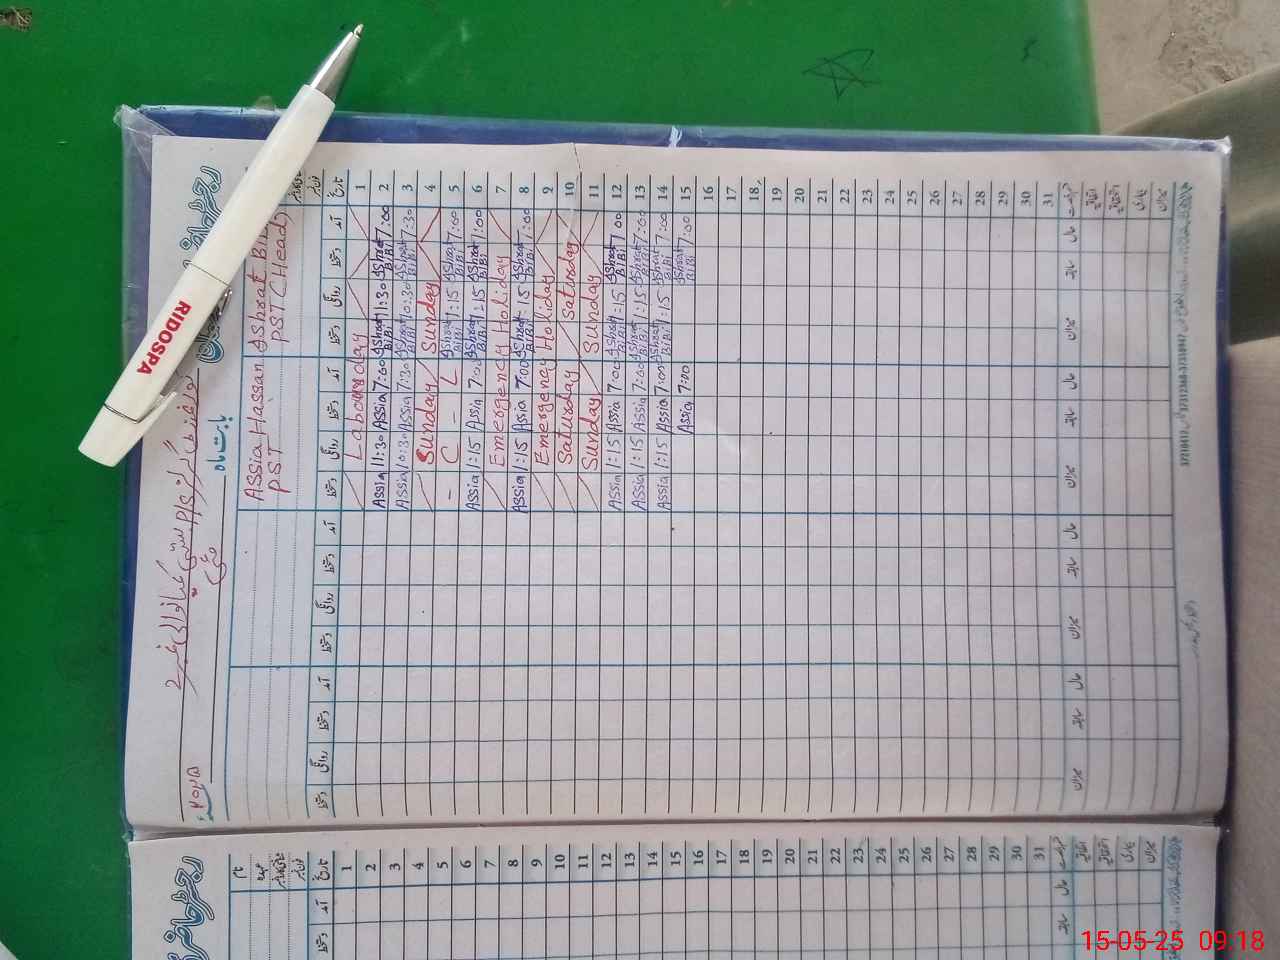 رجسٹر حاضری
۲۰۲۵
بابت ماہ مئی
Assia Hassan
PST
Ashrat Bibi
PST (Head)
تاریخ آمد دستخط روانگی دستخط آمد دستخط روانگی دستخط آمد دستخط روانگی دستخط آمد دستخط روانگی دستخط
1 Labour day
2 7:00 Ashrat Bibi 11:30 Ashrat Bibi 7:00 Assia 11:30 Assia
3 7:30 Ashrat Bibi 10:30 Ashrat Bibi 7:30 Assia 10:30 Assia
4 Sunday Sunday
5 7:00 Ashrat Bibi 1:15 Ashrat Bibi L - C -
6 7:00 Ashrat Bibi 1:15 Ashrat Bibi 7:00 Assia 1:15 Assia
7 Emergency Holiday
8 7:00 Ashrat Bibi 1:15 Ashrat Bibi 7:00 Assia 1:15 Assia
9 Emergency Holiday
10 Saturday Saturday
11 Sunday Sunday
12 7:00 Ashrat Bibi 1:15 Ashrat Bibi 7:00 Assia 1:15 Assia
13 7:00 Ashrat Bibi 1:15 Ashrat Bibi 7:00 Assia 1:15 Assia
14 7:00 Ashrat Bibi 1:15 Ashrat Bibi 7:00 Assia 1:15 Assia
15 7:00 Ashrat Bibi 7:00 Assia
16
17
18
19
20
21
22
23
24
25
26
27
28
29
30
31
حال سابقہ میزان حال سابقہ میزان حال سابقہ میزان حال سابقہ میزان
اتفاقیہ
بیماری
میزان
RIDOSPA
رجسٹر حاضری
نام
عہدہ
تاریخ آمد دستخط
1
2
3
4
5
6
7
8
9
10
11
12
13
14
15
16
17
18
19
20
21
22
23
24
25
26
27
28
29
30
31
حال سابقہ
اتفاقیہ
بیماری
میزان
15-05-25 09:18